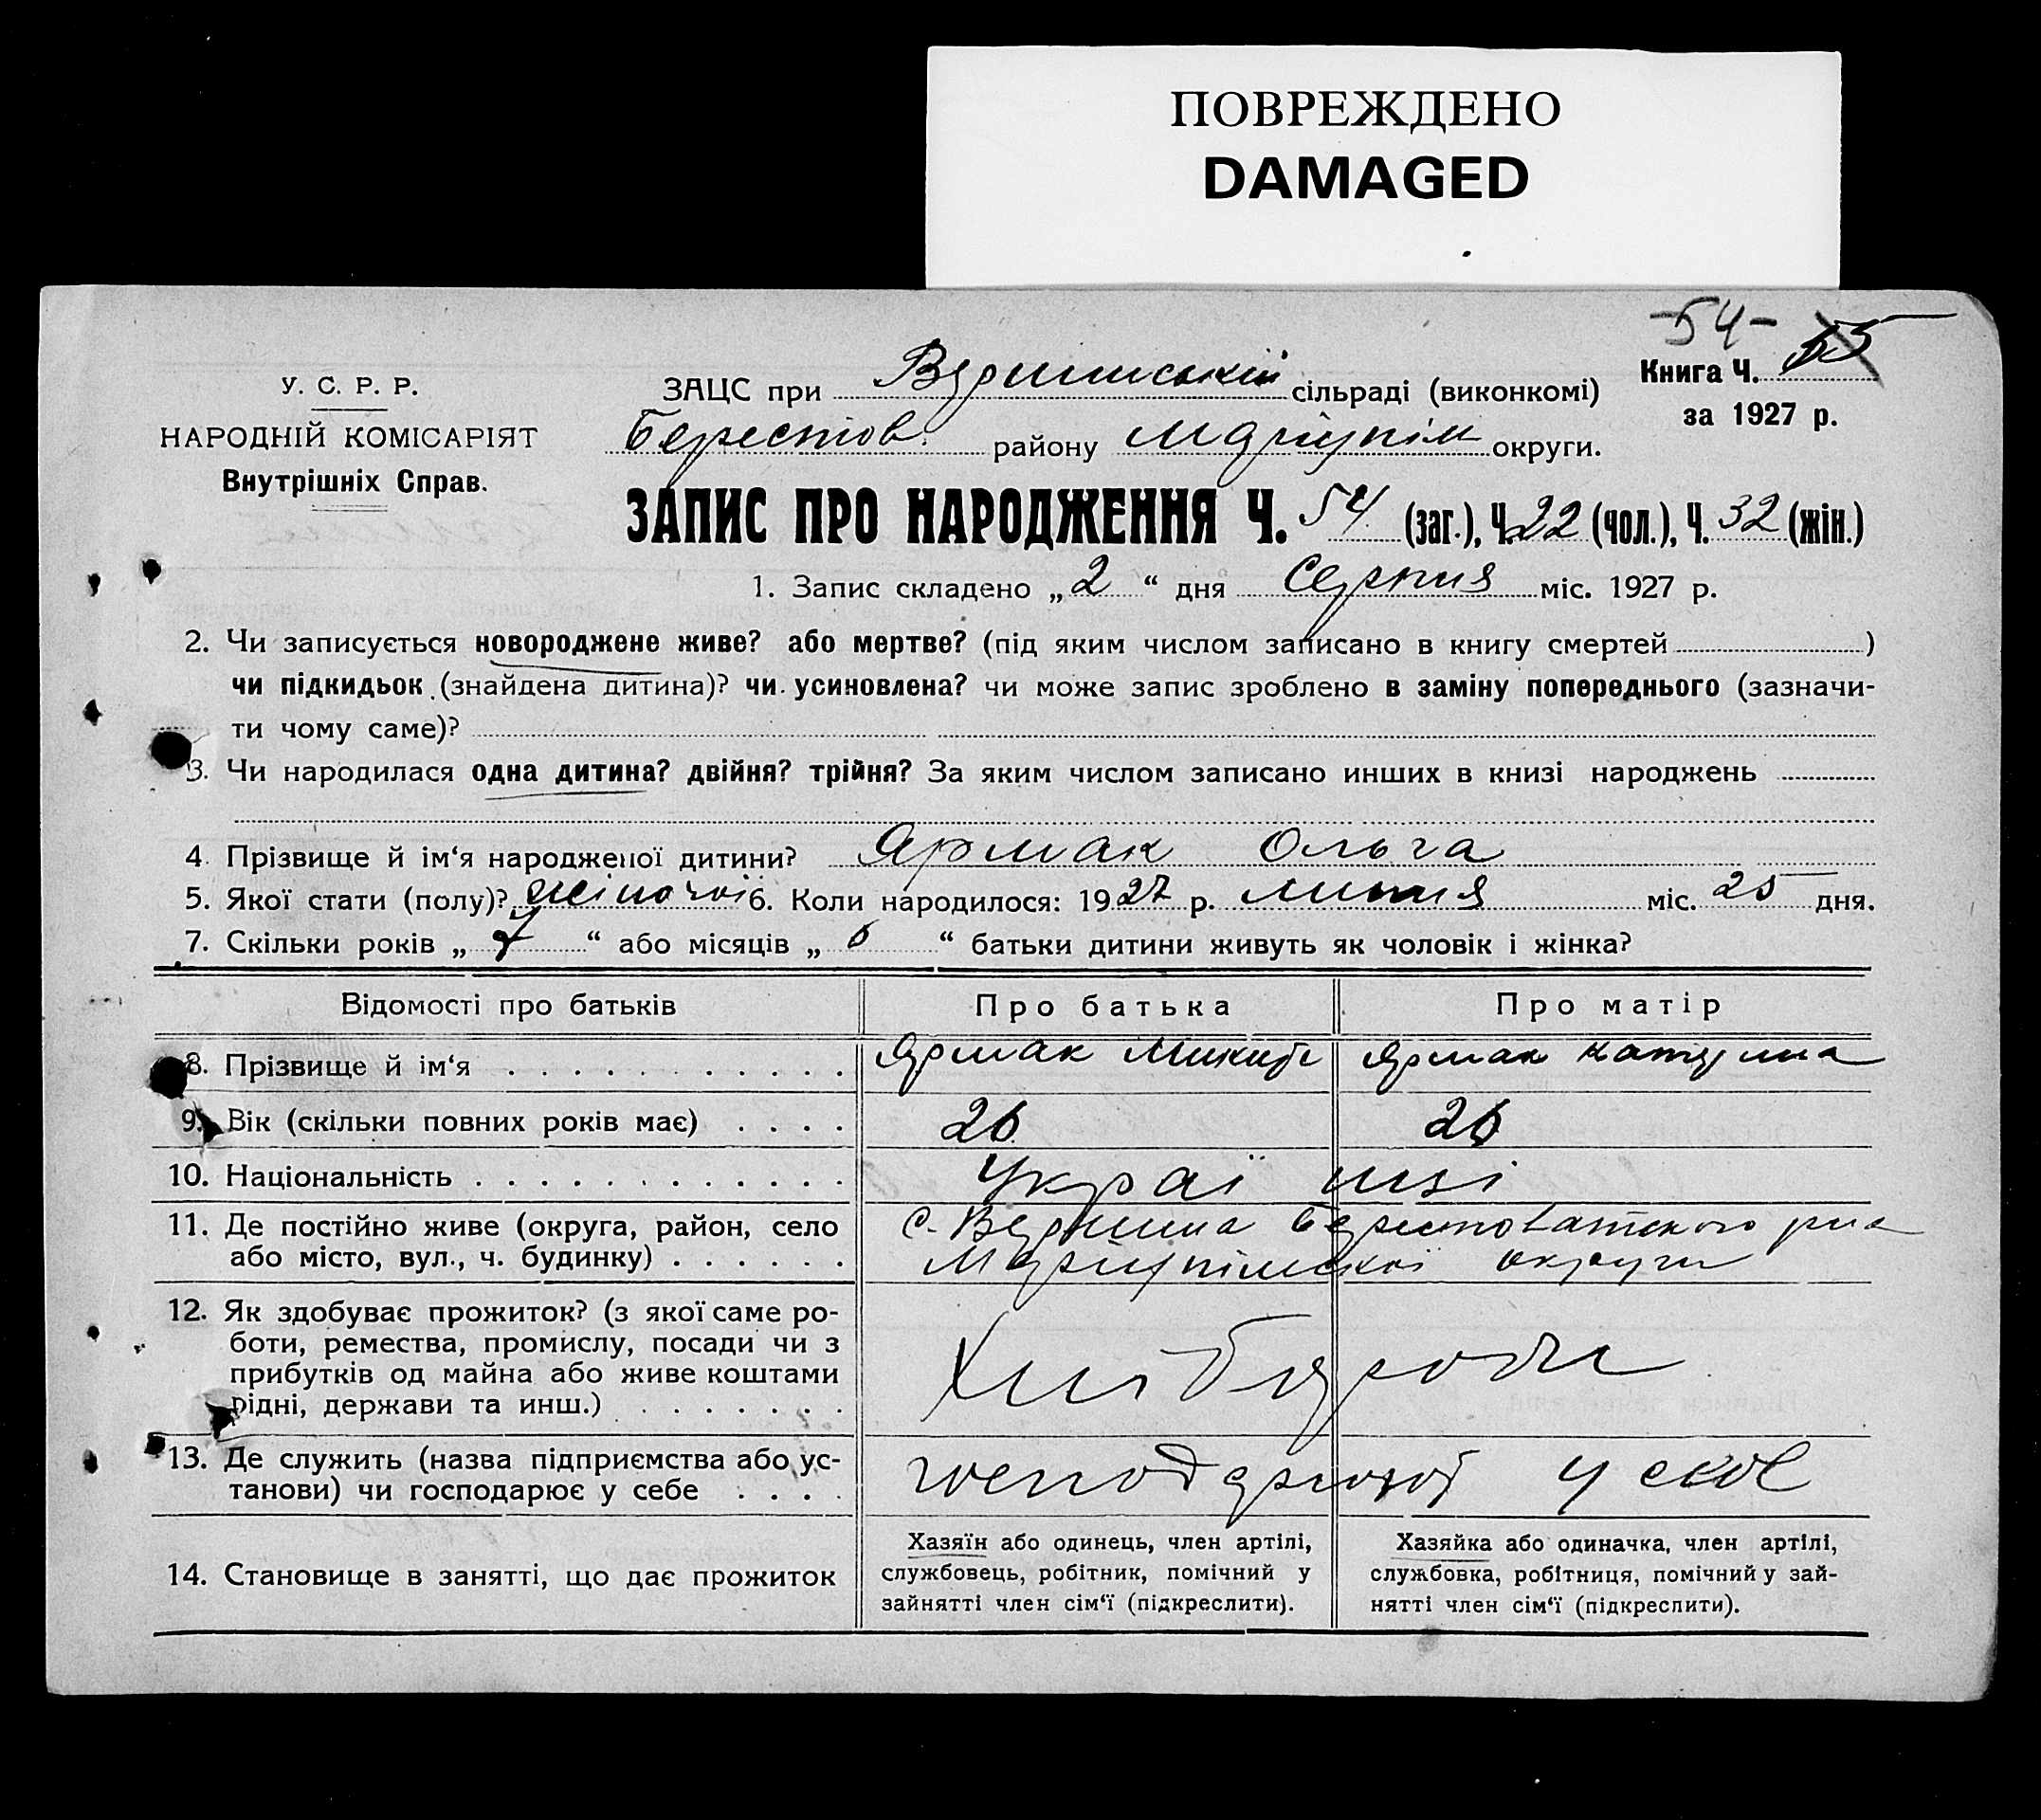 ПОВРЕЖДЕНО
DAMAGED
-54-
У. С. Р. Р.
НАРОДНІЙ КОМІСАРІЯТ
Внутрішніх Справ.
ЗАЦС при сільраді (виконкомі)
Берестов. району Маріупіль округи.
Книга Ч. 55
за 1927 р.
ЗАПИС ПРО НАРОДЖЕННЯ Ч. 54 (заг.), Ч. 22 (чол.), Ч. 32 (жін.)
1. Запис складено „2“ дня Серпня міс. 1927 р.
2. Чи записується новороджене живе? або мертве? (під яким числом записано в книгу смертей )
чи підкидьок (знайдена дитина)? чи усиновлена? чи може запис зроблено в заміну попереднього (зазначи-
ти чому саме)?
3. Чи народилася одна дитина? двійня? трійня? За яким числом записано инших в книзі народжень
4. Прізвище й ім‘я народженої дитини? Ярмак Ольга
5. Якої стати (полу)? жіночої 6. Коли народилося: 1927 р. липня міс. 25 дня.
7. Скільки років „7“ або місяців „6“ батьки дитини живуть як чоловік і жінка?
Відомості про батьків Про батька Про матір
8. Прізвище й ім‘я Ярмак Микита Ярмак Катерина
9. Вік (скільки повних років має) 26 26
10. Національність Українці
11. Де постійно живе (округа, район, село
або місто, вул., ч. будинку)
с. Вершина Берестоватского р-на
Маріупільскої округи
12. Як здобуває прожиток? (з якої саме ро-
боти, ремества, промислу, посади чи з
прибутків од майна або живе коштами
рідні, держави та инш.)
Хліборобі
13. Де служить (назва підприємства або ус-
танови) чи господарює у себе
у себе
14. Становище в занятті, що дає прожиток
Хазяїн або одинець, член артілі,
службовець, робітник, помічний у
зайнятті член сім‘ї (підкреслити).
Хазяйка або одиначка, член артілі,
службовка, робітниця, помічний у зай-
нятті член сім‘ї (підкреслити).